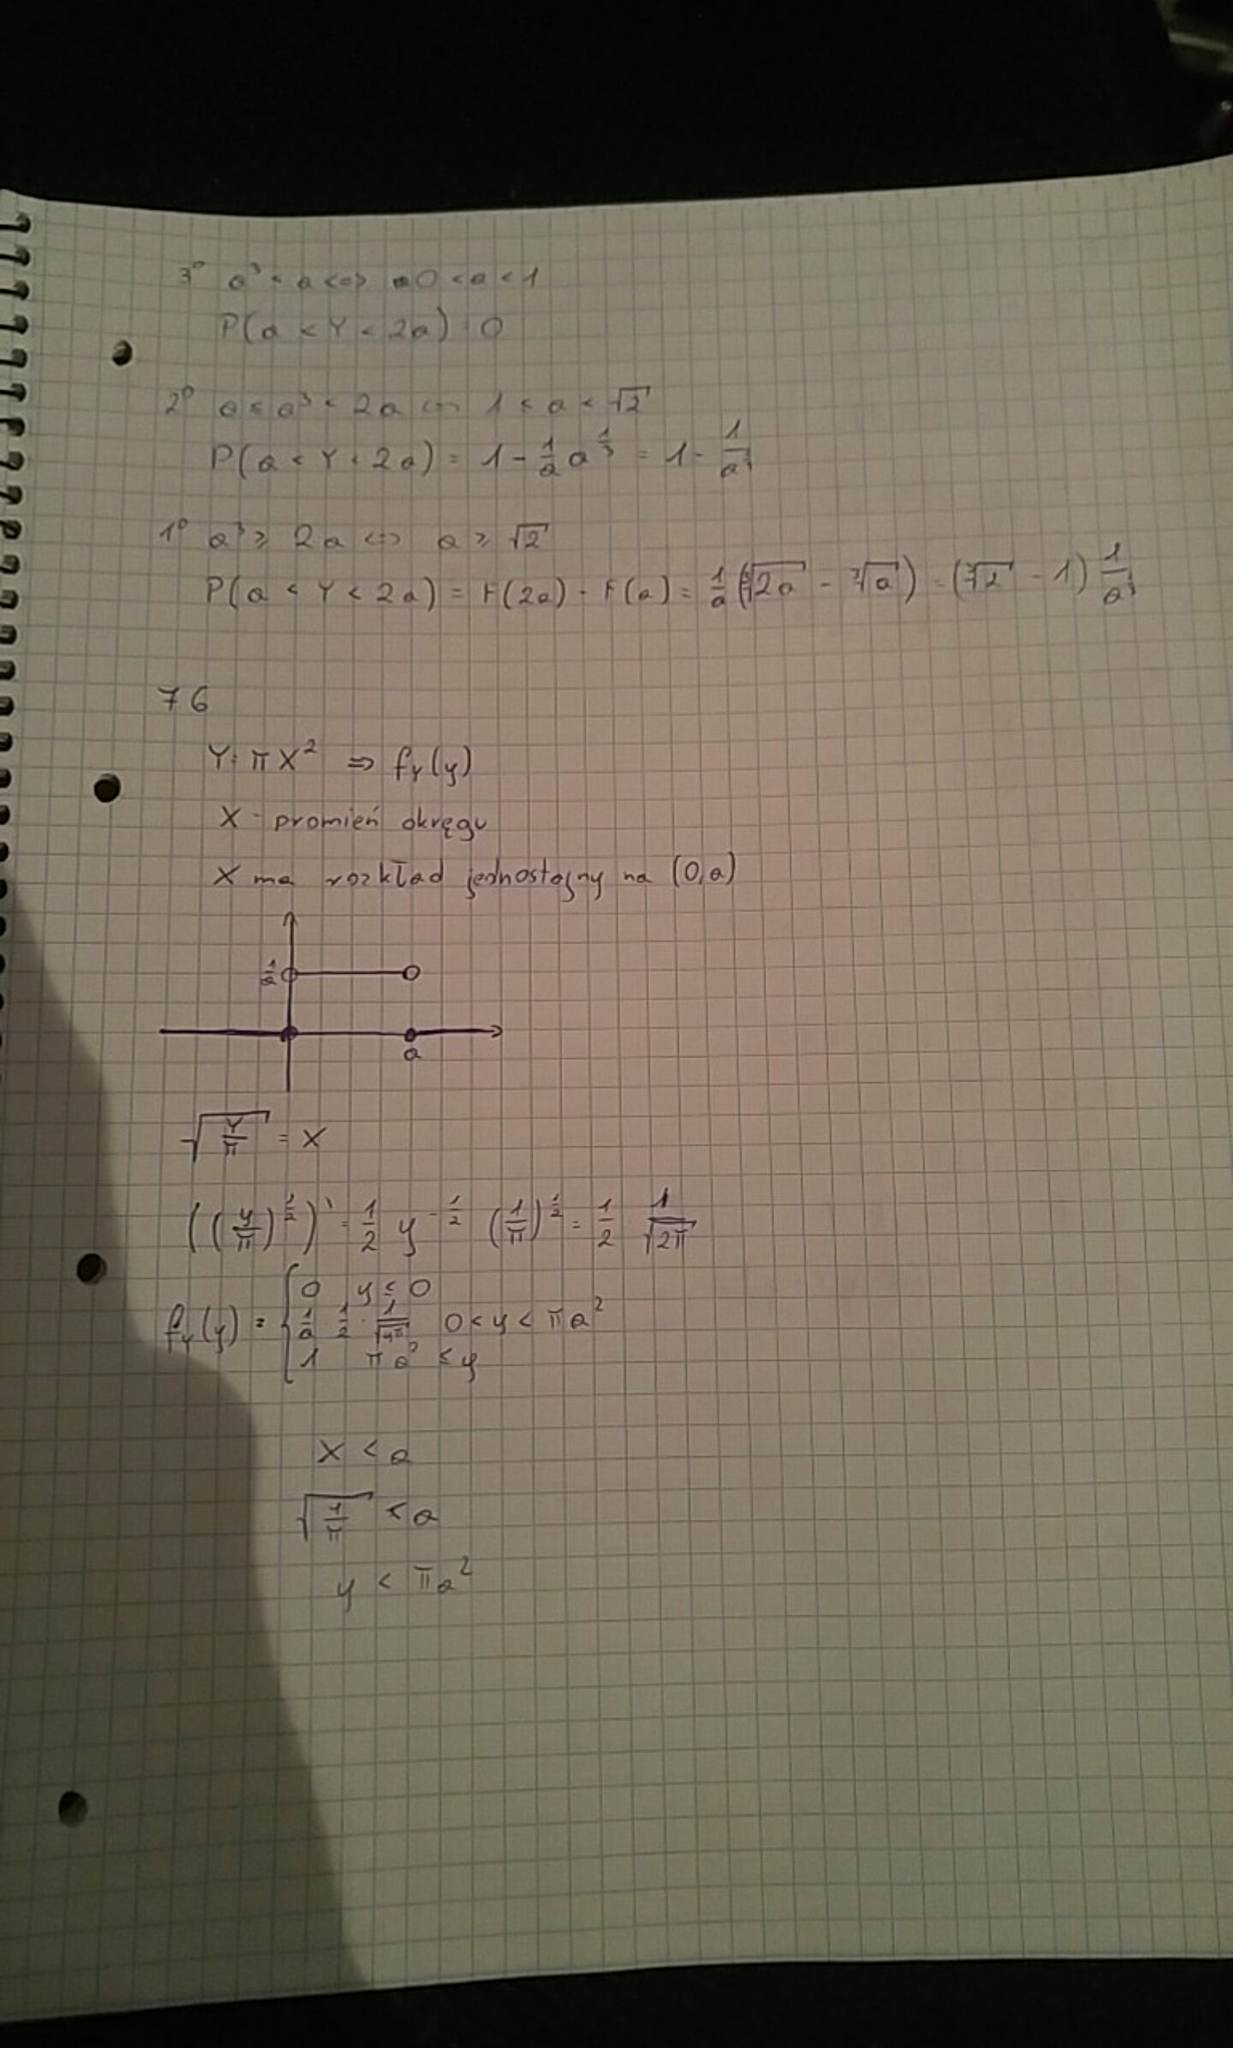 3° a³ < a <=> 0 < a < 1
P(a < Y < 2a) = 0
2° a ≤ a³ < 2a <=> 1 ≤ a < √2
P(a < Y < 2a) = 1 - 1/a a^(1/3) = 1 -
1° a³ ≥ 2a <=> a ≥ √2
P(a < Y < 2a) = F(2a) - F(a) = 1/a (∛2a - ∛a) = (∛2 - 1)
76
Y = πX² => f_Y(y)
X - promień okręgu
X ma rozkład jednostajny na (0,a)
1/a
a
√(Y/π) = X
((y/π)^(1/2))' = 1/2 y^(-1/2) (1/π)^(1/2) = 1/2 1/√2π
f_Y(y) = { 0 y ≤ 0
1/a · 1/2 · 1/√yπ 0 < y < πa²
1 πa² ≤ y
X < a
√(1/π) < a
y < πa²